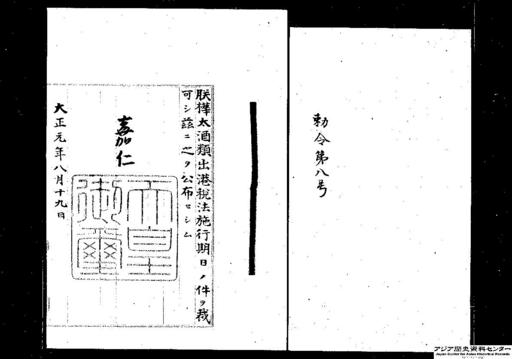 勅令第八号
朕樺太酒類出港税法施行期日ノ件ヲ裁
可シ茲ニ之ヲ公布セシム
嘉仁
天皇御璽
大正元年八月十九日
アジア歴史資料センター
Japan Center for Asian Historical Records